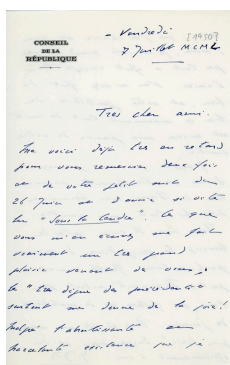 - Vendredi [1950]
CONSEIL
DE LA
RÉPUBLIQUE
7 Juillet MCML
Très cher ami.
Me voici déjà très en retard
pour vous remercier deux fois
et de votre petit mot du
26 Juin et d'avoir si vite
lu "Sous la cendre". Ce que
vous m'en écrivez me fait
vraiment un très grand
plaisir venant de vous ;
le "très digne des précédents"
surtout me donne de la joie !
Malgré l'abrutissante et
harcelante existence que je